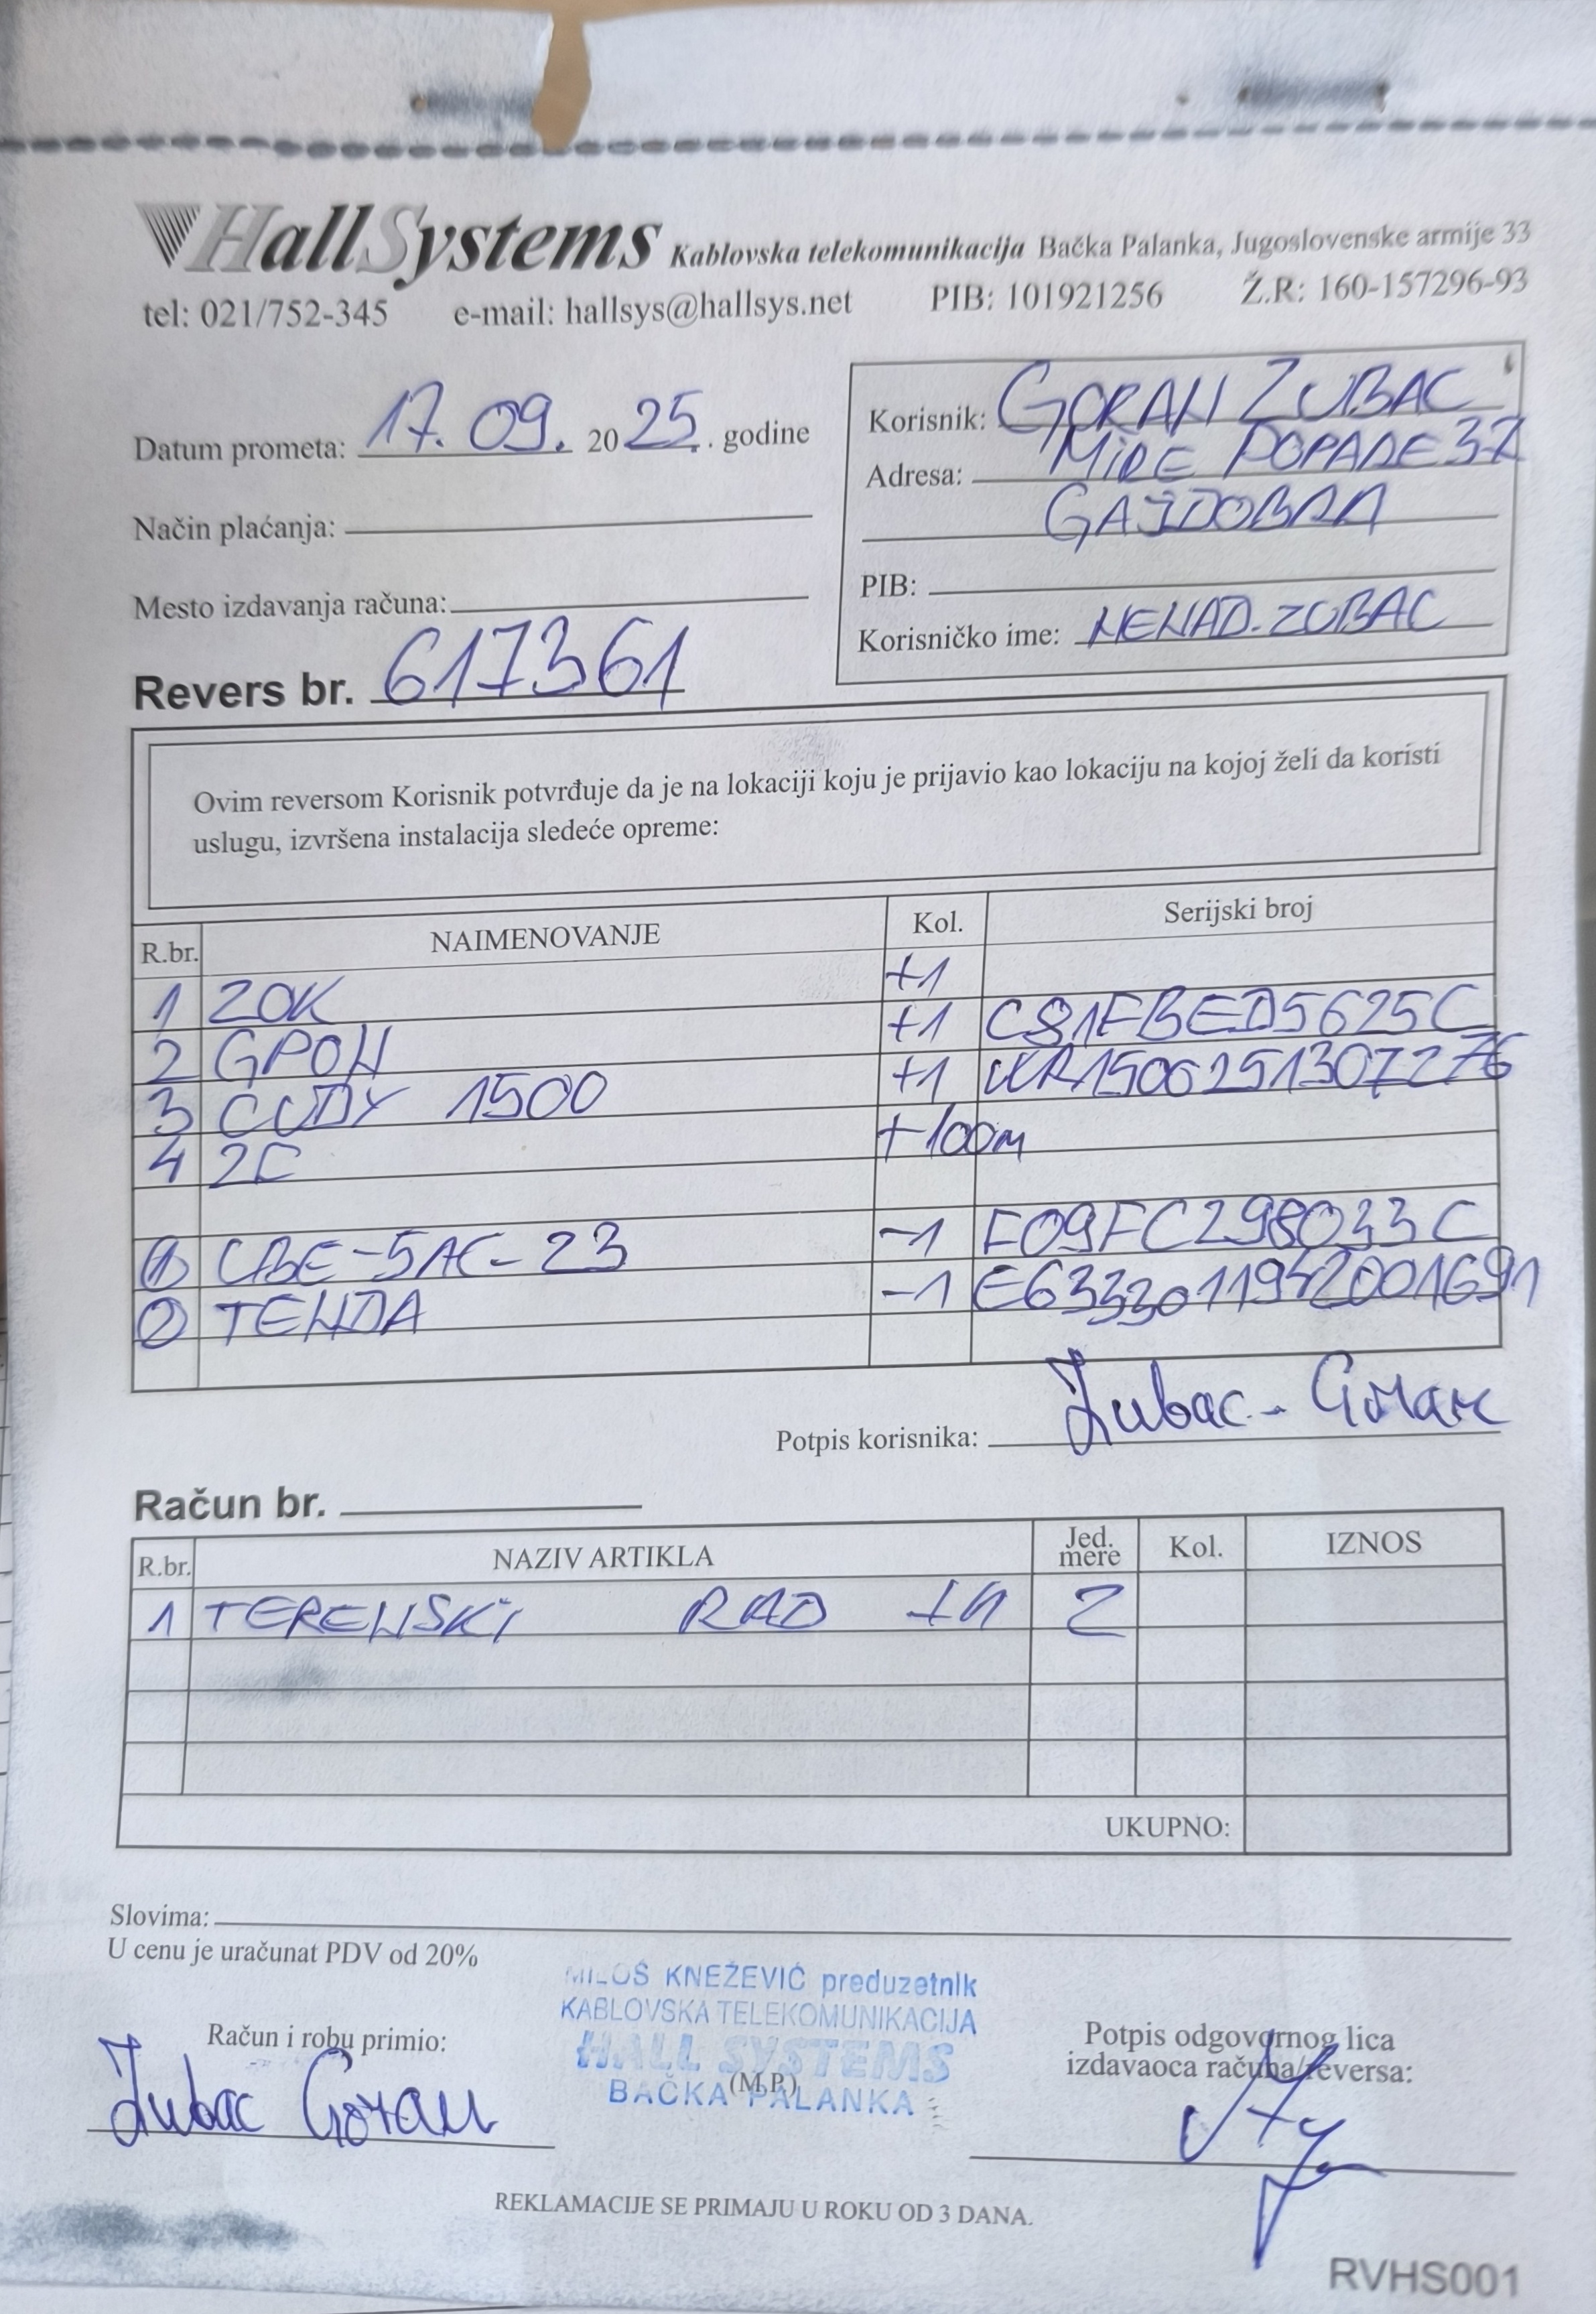 HallSystems Kablovska telekomunikacija Bačka Palanka, Jugoslovenske armije 33
tel: 021/752-345 e-mail: hallsys@hallsys.net PIB: 101921256 Ž.R: 160-157296-93
Datum prometa: 17. 09. 2025. godine
Način plaćanja:
Mesto izdavanja računa:
Revers br. 617361
Korisnik: GORAN ZUBAC
Adresa: MIRE POPADE 37
GAJDOBRA
PIB:
Korisničko ime: NENAD.ZUBAC
Ovim reversom Korisnik potvrđuje da je na lokaciji koju je prijavio kao lokaciju na kojoj želi da koristi
uslugu, izvršena instalacija sledeće opreme:
R.br. NAIMENOVANJE Kol. Serijski broj
1 ZOK +1
2 GPON +1 C81FBED5625C
3 CUDY 1500 +1 WR1506251307276
4 2C +100m
1 LBE-5AC-23 -1 F09FC298033C
2 TENDA -1 E6333011942001691
Potpis korisnika: Zubac - Goran
Račun br.
R.br. NAZIV ARTIKLA Jed. mere Kol. IZNOS
1 TERENSKI RAD 1H 2
UKUPNO:
Slovima:
U cenu je uračunat PDV od 20%
MILOŠ KNEŽEVIĆ preduzetnik
KABLOVSKA TELEKOMUNIKACIJA
HALL SYSTEMS
BAČKA PALANKA
(M.P.)
Račun i robu primio:
Zubac Goran
Potpis odgovornog lica
izdavaoca računa/reversa:
REKLAMACIJE SE PRIMAJU U ROKU OD 3 DANA.
RVHS001